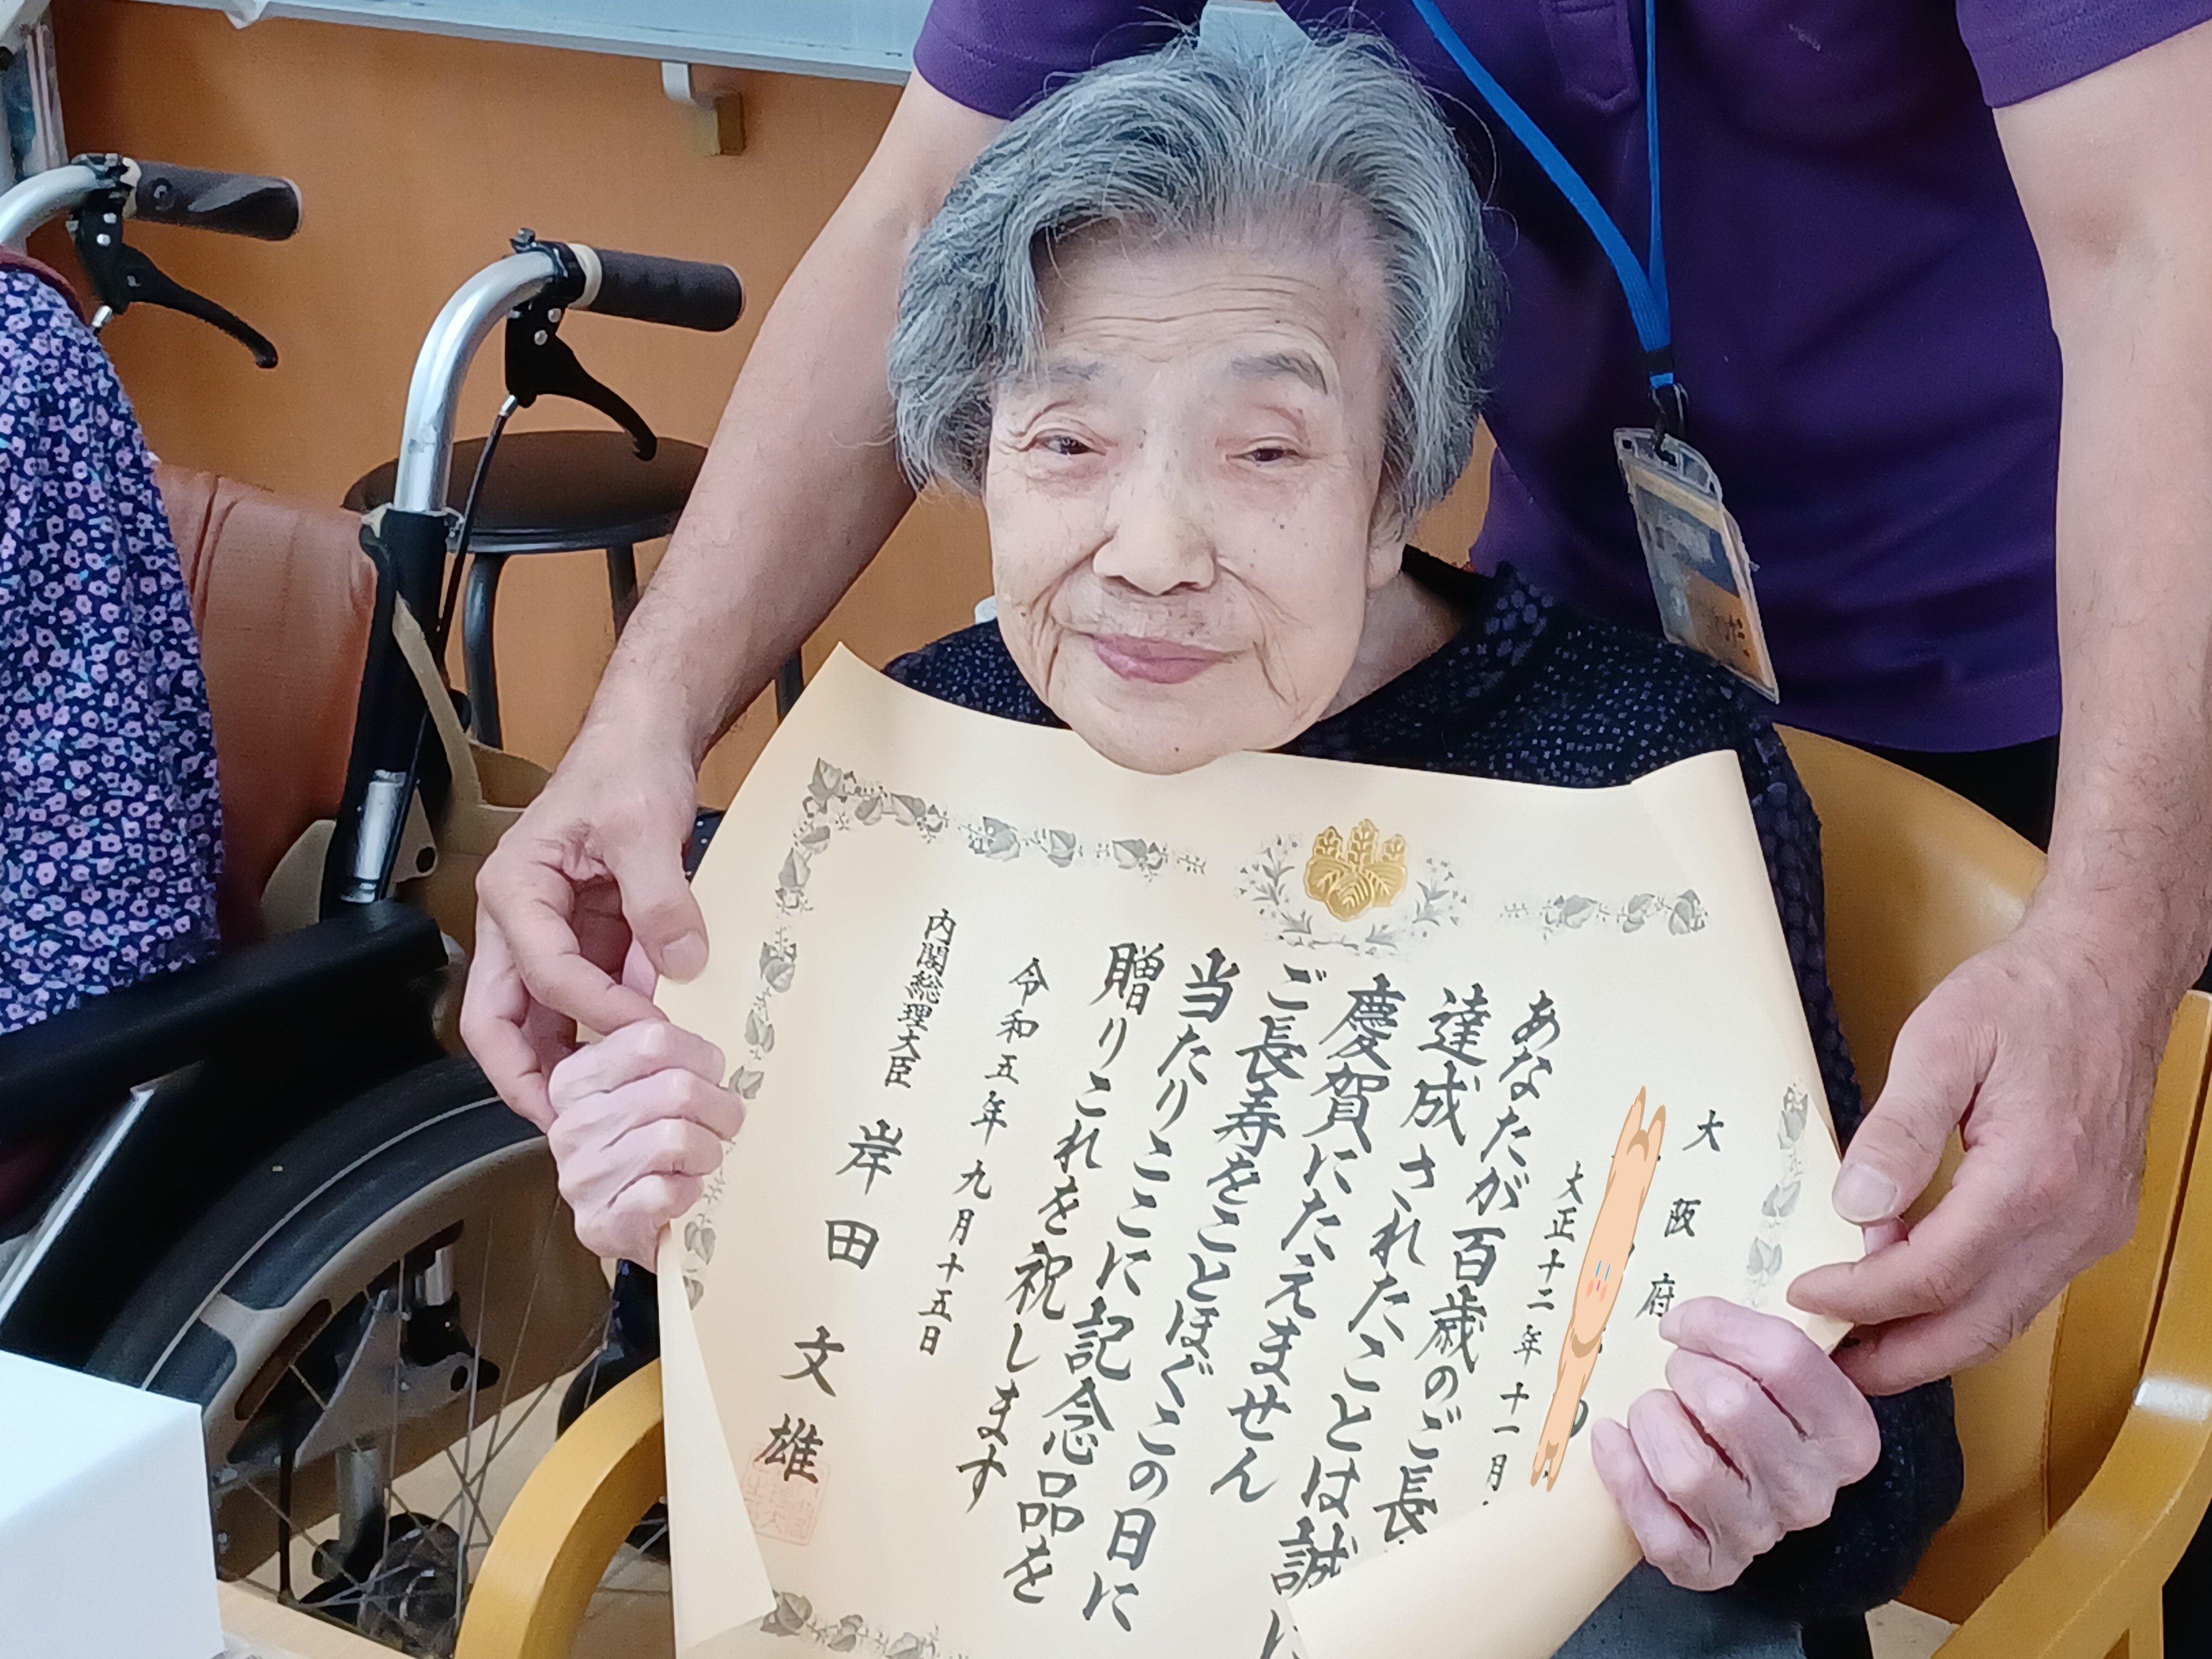 大阪府
大正十二年十一月
あなたが百歳のご長
達成されたことは誠に
慶賀にたえません
ご長寿をことほぐこの日に
当たりここに記念品を
贈りこれを祝します
令和五年九月十五日
内閣総理大臣 岸田文雄